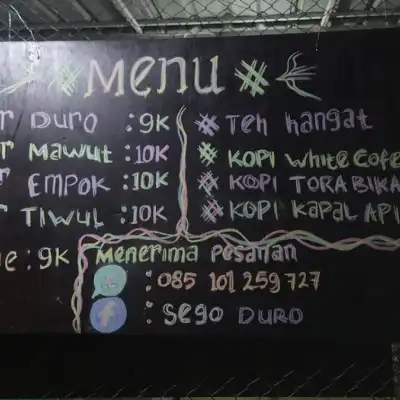 MENU
r DURO : 9K
r MAWUT : 10K
r EMPOK : 10K
r TIWUL : 10K
e : 9K
# Teh hangat
# KOPI White Cofe
# KOPI TORABIKA
# KOPI KAPAL API
Menerima Pesanan
: 085 101 259 727
f : Sego DURO